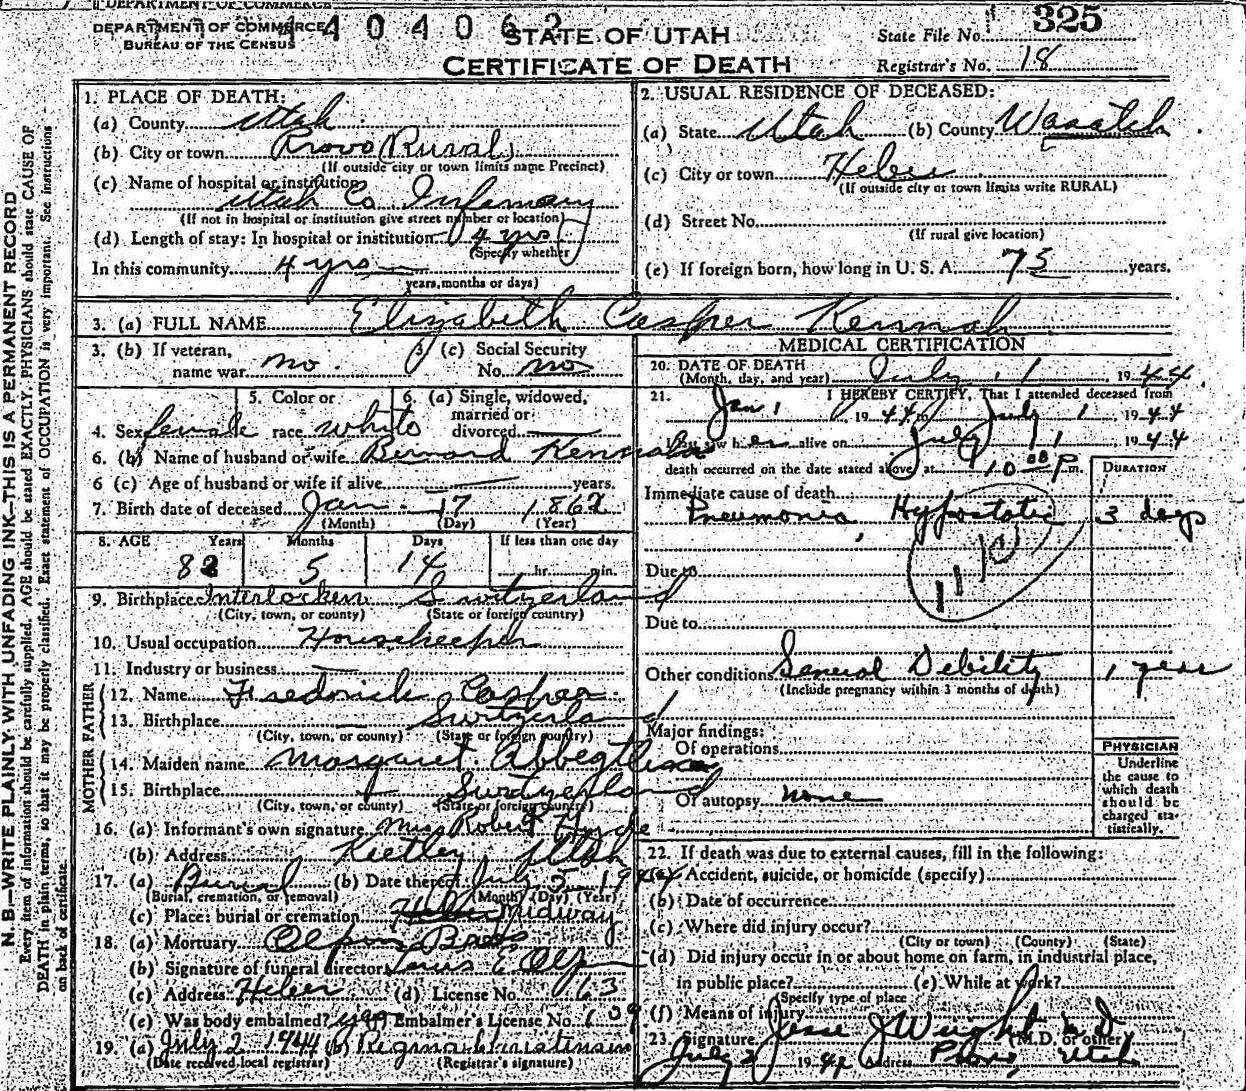 DEPARTMENT OF COMMERCE
DEPARTMENT OF COMMERCE
BUREAU OF THE CENSUS
4 0 4 0 6 2
STATE OF UTAH
CERTIFICATE OF DEATH
State File No. 325
Registrar's No. 18
N. B.—WRITE PLAINLY WITH UNFADING INK—THIS IS A PERMANENT RECORD
Every item of information should be carefully supplied. AGE should be stated EXACTLY. PHYSICIANS should state CAUSE OF
DEATH in plain terms, so that it may be properly classified. Exact statement of OCCUPATION is very important. See instructions
on back of certificate
1. PLACE OF DEATH:
(a) County Utah
(b) City or town Provo (Rural)
(If outside city or town limits name Precinct)
(c) Name of hospital or institution
Utah Co Infirmary
(If not in hospital or institution give street number or location)
(d) Length of stay: In hospital or institution 4 yrs
(Specify whether
In this community 4 yrs
years, months or days)
2. USUAL RESIDENCE OF DECEASED:
(a) State Utah (b) County Wasatch
(c) City or town Heber
(If outside city or town limits write RURAL)
(d) Street No.
(If rural give location)
(e) If foreign born, how long in U. S. A. 75 years.
3. (a) FULL NAME Elizabeth Casper Kennah
3. (b) If veteran, name war no.
3 (c) Social Security No. no
4. Sex female
5. Color or race white
6. (a) Single, widowed, married or divorced
6. (b) Name of husband or wife Bernard Kennah
6 (c) Age of husband or wife if alive years.
7. Birth date of deceased Jan. 17 1862
(Month) (Day) (Year)
8. AGE Years Months Days If less than one day
82 5 14 hr. min.
9. Birthplace Interlocken Switzerland
(City, town, or county) (State or foreign country)
10. Usual occupation Housekeeper
11. Industry or business
FATHER
12. Name Fredrick Casper
13. Birthplace Switzerland
(City, town, or county) (State or foreign country)
MOTHER
14. Maiden name Margaret
15. Birthplace Switzerland
(City, town, or county) (State or foreign country)
16. (a) Informant's own signature Robert
(b) Address Keetley Utah
17. (a) Burial (b) Date thereof July 5 1944
(Burial, cremation, or removal) (Month) (Day) (Year)
(c) Place: burial or cremation Heber Midway
18. (a) Mortuary Olpin Bros
(b) Signature of funeral director
(c) Address Heber (d) License No. 63
(e) Was body embalmed? yes (f) Embalmer's License No. 609
19. (a) July 2 1944 (b) Regina Christensen
(Date received local registrar) (Registrar's signature)
MEDICAL CERTIFICATION
20. DATE OF DEATH
(Month, day, and year) July 1, 1944
21. I HEREBY CERTIFY, That I attended deceased from
Jan 1 1944 to July 1 1944
I last saw her alive on July 1 1944
death occurred on the date stated above, at 10 00 P m.
DURATION
Immediate cause of death
Pneumonia, Hypostatic 3 days
Due to
Due to
Other conditions General Debility 1 year
(Include pregnancy within 3 months of death)
Major findings:
Of operations
Of autopsy none
PHYSICIAN
Underline
the cause to
which death
should be
charged sta-
tistically.
22. If death was due to external causes, fill in the following:
(a) Accident, suicide, or homicide (specify)
(b) Date of occurrence
(c) Where did injury occur?
(City or town) (County) (State)
(d) Did injury occur in or about home on farm, in industrial place,
in public place? (e) While at work?
(Specify type of place
(f) Means of injury
23. Signature Jesse J Weight M D
(M.D. or other)
July 2 1944 Address Provo, Utah